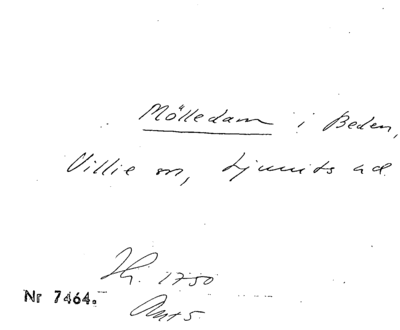 Mölledam i Beden,
Villie sn, Ljunits hd.
Hr. 1750
Nr 7464.
Ant 5.